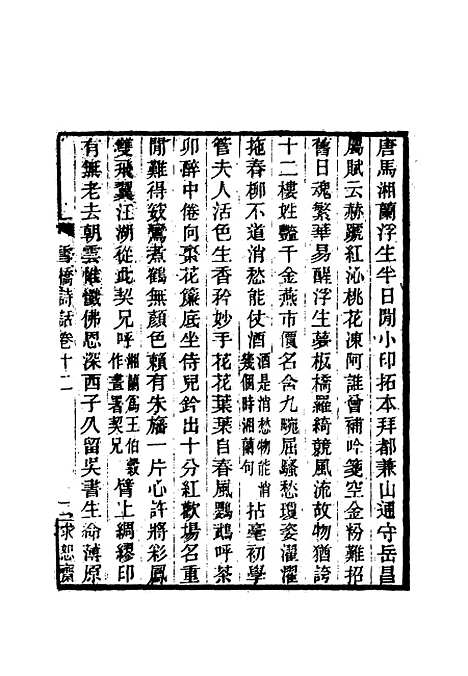 唐馬湘蘭浮生半日閒小印拓本拜都兼山通守岳昌
屬賦云赫蹏紅沁桃花凍阿誰曾補吟箋空金粉難招
舊日魂繁華易醒浮生夢板橋羅綺競風流故物猶誇
十二樓姓豔千金燕市價名含九畹屈騷愁瓊姿濯濯
拖春柳不道消愁能仗酒酒是消愁物能消幾個時湘蘭句拈毫初學
管夫人活色生香矜妙手花花葉葉自春風鸚鵡呼茶
卯醉中倦向棗花簾底坐侍兒鈐出十分紅歡場名重
閒難得奴鴬煮鶴無顏色賴有朱旛一片心許將彩鳳
雙飛翼江湖從此契兄呼湘蘭爲王伯穀作畫署契兄臂上綢繆印
有無老去朝雲惟懺佛恩深西子久留吳書生命薄原
雪橋詩話卷十二
求恕齋